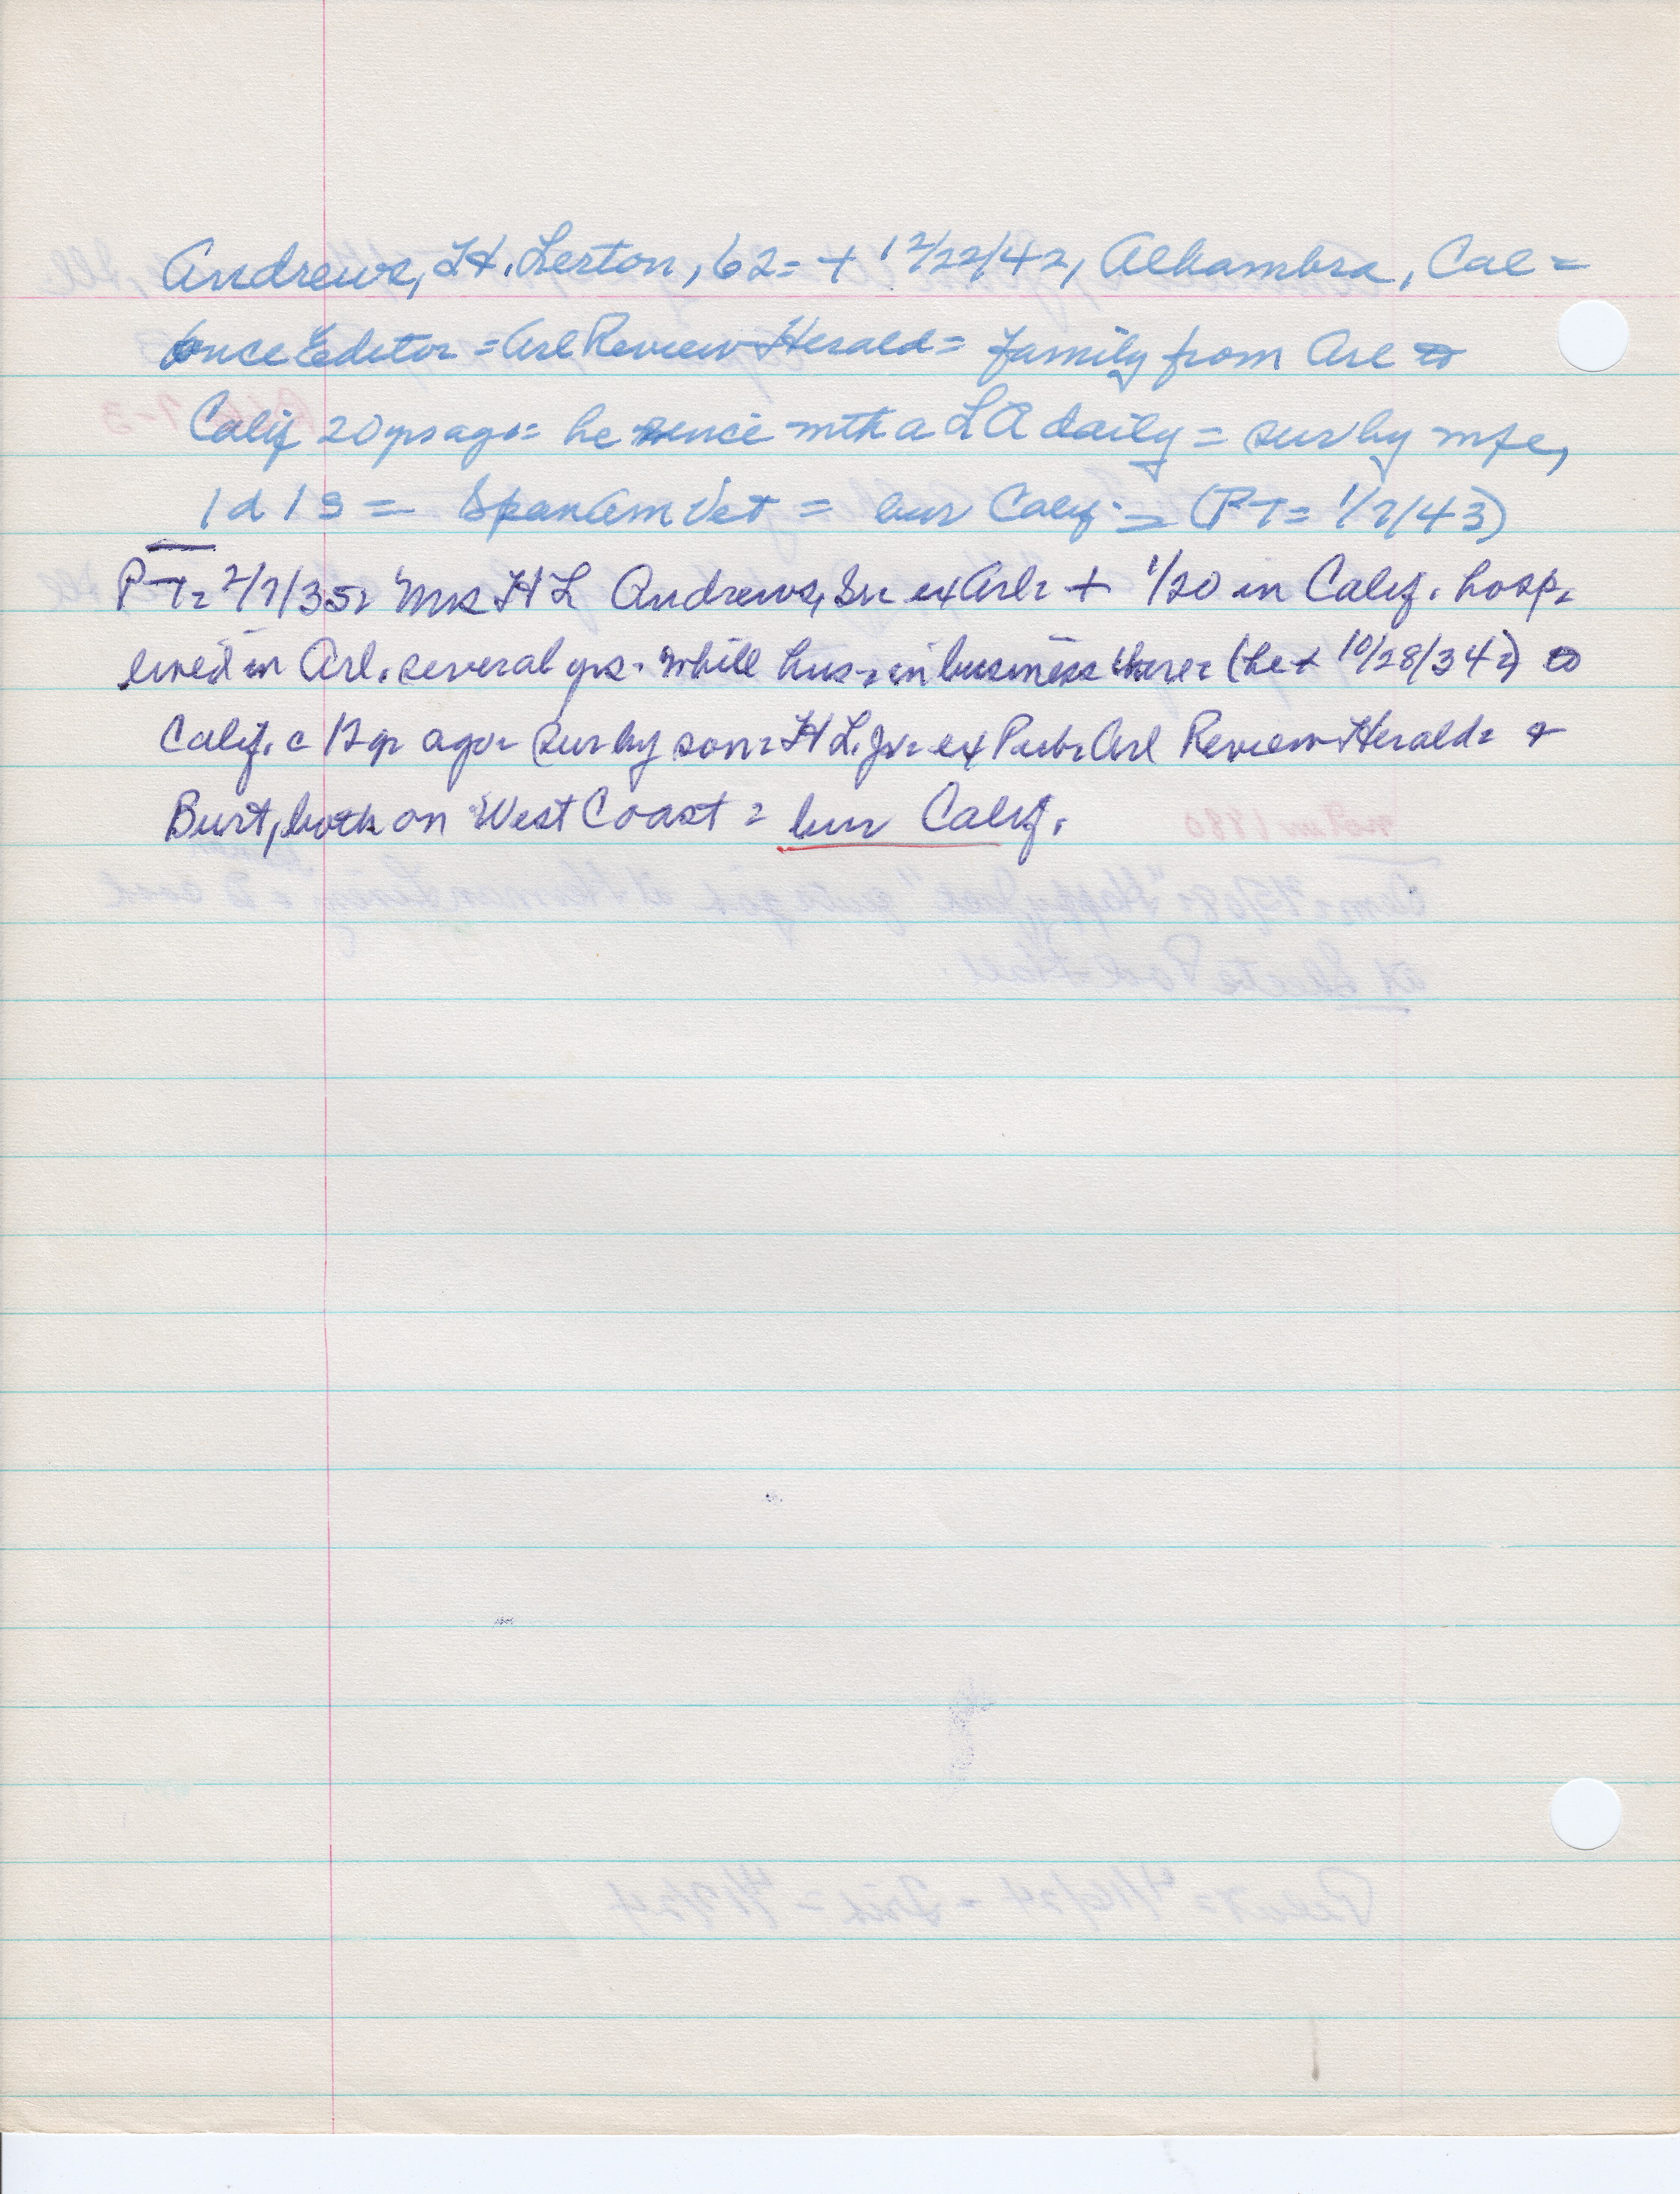 Andrews, H. Lerton, 62 = + 12/22/42, Alhambra, Cal =
once Editor = Arl Review-Herald = family from Arl to
Calif 20 yrs ago = he since with a LA daily = sur by wife,
1 d 1 s = Span Am Vet = bur Calif = (PT = 1/7/43)
PT = 2/7/35 = Mrs H L Andrews, Sr = ex Arl = + 1/20 in Calif. hosp. =
lived in Arl. several yrs. while hus. in business there = (he + 10/28/34 =) to
Calif. c 12 yr ago = sur by son = H L. Jr = ex Pub = Arl Review-Herald = &
Burt, both on West Coast = bur Calif.